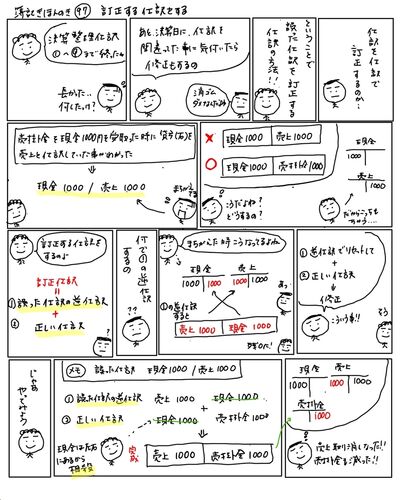 簿記きほんのき 97 訂正する仕訳をする
決算整理仕訳
①〜⑨まで終った
長かった…
何したっけ?
あと、決算日に、仕訳を
間違った事に気付いたら
修正もするの
消しゴム
ダメなんだよね
ということで
誤った仕訳を訂正する
仕訳の方法!!
仕訳を仕訳で
訂正するのか…
売掛金を現金1000円を受取った時に貸方(右)を
売上と仕訳していた事がわかった
現金 1000 / 売上 1000
× 現金 1000 売上 1000
○ 現金 1000 売掛金 1000
こうだよね?
どうするの?
現金
1000
売上
1000
だからこっちも
訂正する仕訳を
するのよ
訂正仕訳
=
①誤った仕訳の逆仕訳
+
② 正しい仕訳
何で①の逆仕訳
するの
??
まちがった時こうなってるよね
現金 売上
1000 1000
1000 1000
①の逆仕訳
すると
売上 1000 現金 1000
あっ
①逆仕訳でリセットして
+
②正しい仕訳
=
修正
こういう事!!
じゃあ
やってみよう
メモ 誤った仕訳 現金 1000 / 売上 1000
①誤った仕訳の逆仕訳 売上 1000 現金 1000
+
② 正しい仕訳 現金 1000 売掛金 1000
現金は左右
にあるから
相殺
完成
売上 1000 売掛金 1000
現金 売上
1000 1000 1000 1000
売掛金
1000
売上取り消しなった!!
売掛金も減った!!